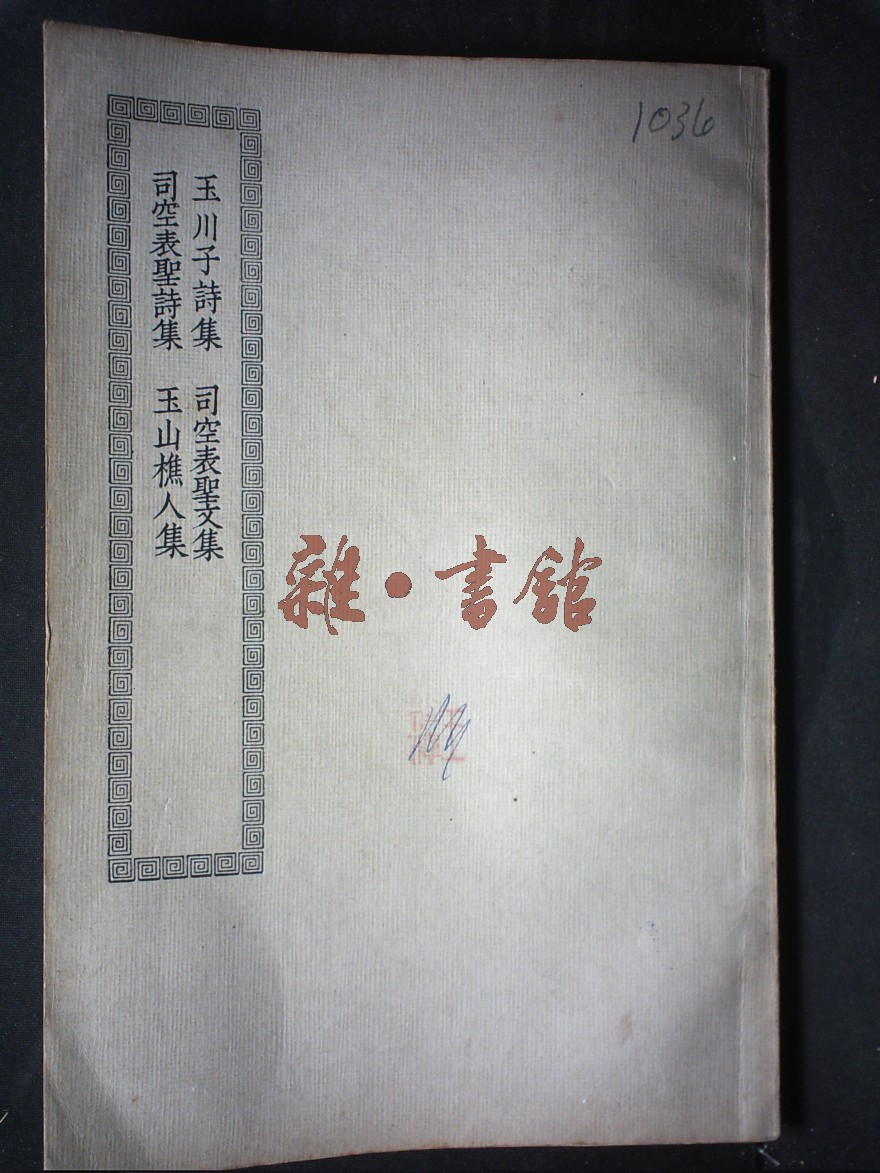 1036
玉川子詩集　司空表聖文集
司空表聖詩集　玉山樵人集
雜·書館